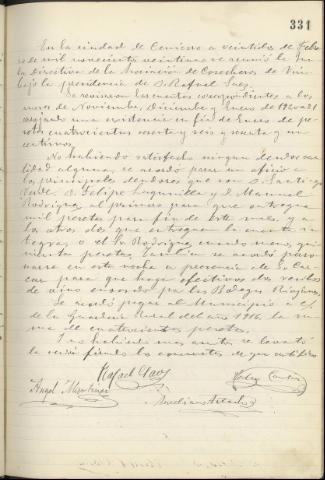 331
En la ciudad de Cenicero a veintidos de Febre
ro de mil novecientos veintiuno se reunió la Jun
ta Directiva de la Asociación de Cosecheros de Vino
bajo la presidencia de D. Rafael
Se revisaron las cuentas correspondientes a los
meses de Noviembre, Diciembre y Enero de 1920 a 21
una existencia en fin de Enero de pe
setas cuatrocientas y seis y y un
centimos.
No habiendo satisfecho ningun deudor can
tidad alguna, se acordó pasar un oficio a
los principales deudores que son D. Santiago
D. Felipe y D. Manuel
Rodrigo, al primero para que entregue
mil pesetas para fin de este mes, y a
los otros dos que entreguen la cuenta in
tegra, o el Sr Rodrigo cuando menos, qui
nientas pesetas. Tambien se acordó perso
narse en esta noche a presencia de
para que haga efectivos los
de vino por las Bodegas Riojanas.
Se acordó pagar al Municipio a c/
de la Guarderia Rural del año 1916 la su
ma de cuatrocientas pesetas.
Y no habiendo mas asuntos se levantó
la sesión firmando los concurrentes de que certifico
Rafael
Angel